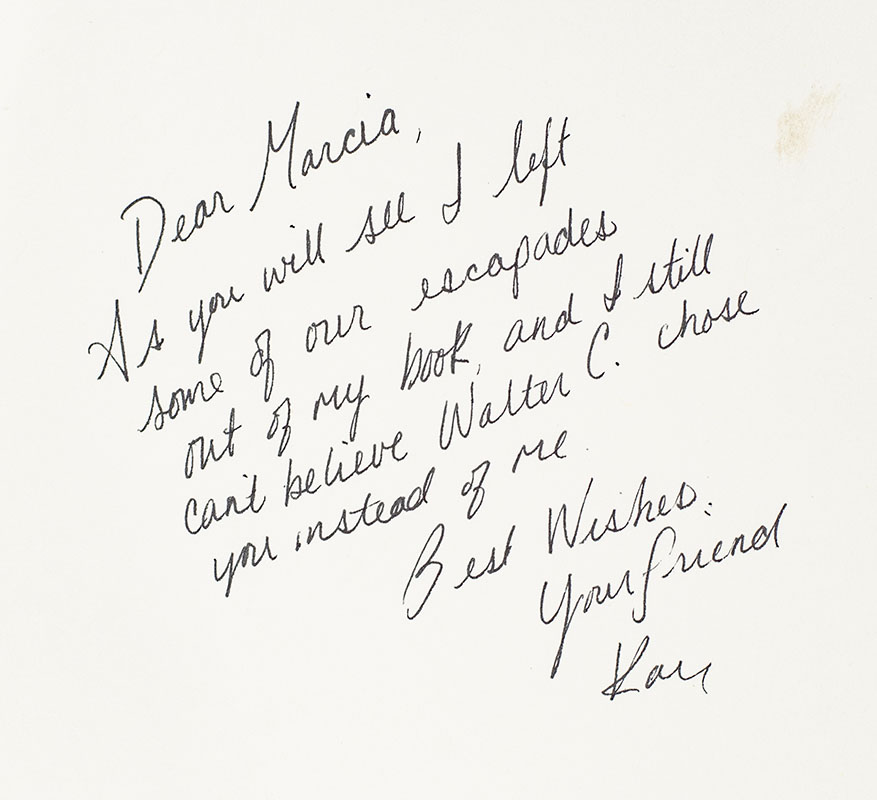 Dear Marcia,
As you will see I left
some of our escapades
out of my book, and I still
can't believe Walter C. chose
you instead of me
Best Wishes.
Your friend
Kay